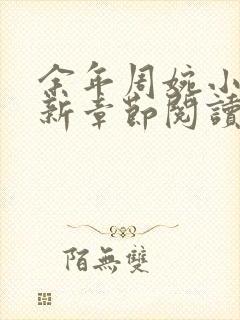 余年周婉小
新章節閱讀
陌無雙